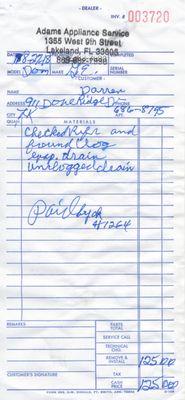 - DEALER -
INV. # 003720
Adams Appliance Service
1355 West 9th Street
Lakeland, FL
DATE
MODEL Dom MAKE GE SERIAL NUMBER
- CUSTOMER -
NAME Darren
ADDRESS 911 Doneridge Dr
CITY 686-8795
QUAN. MATERIALS
Checked Refr and
found Clog
evap. drain
unclogged drain
Paid by ck
#1264
REMARKS
PARTS TOTAL
SERVICE CALL
TECHNICAL CHG.
REMOVE & INSTALL 125.00
TAX
CUSTOMER'S SIGNATURE
CASH PRICE 125.00